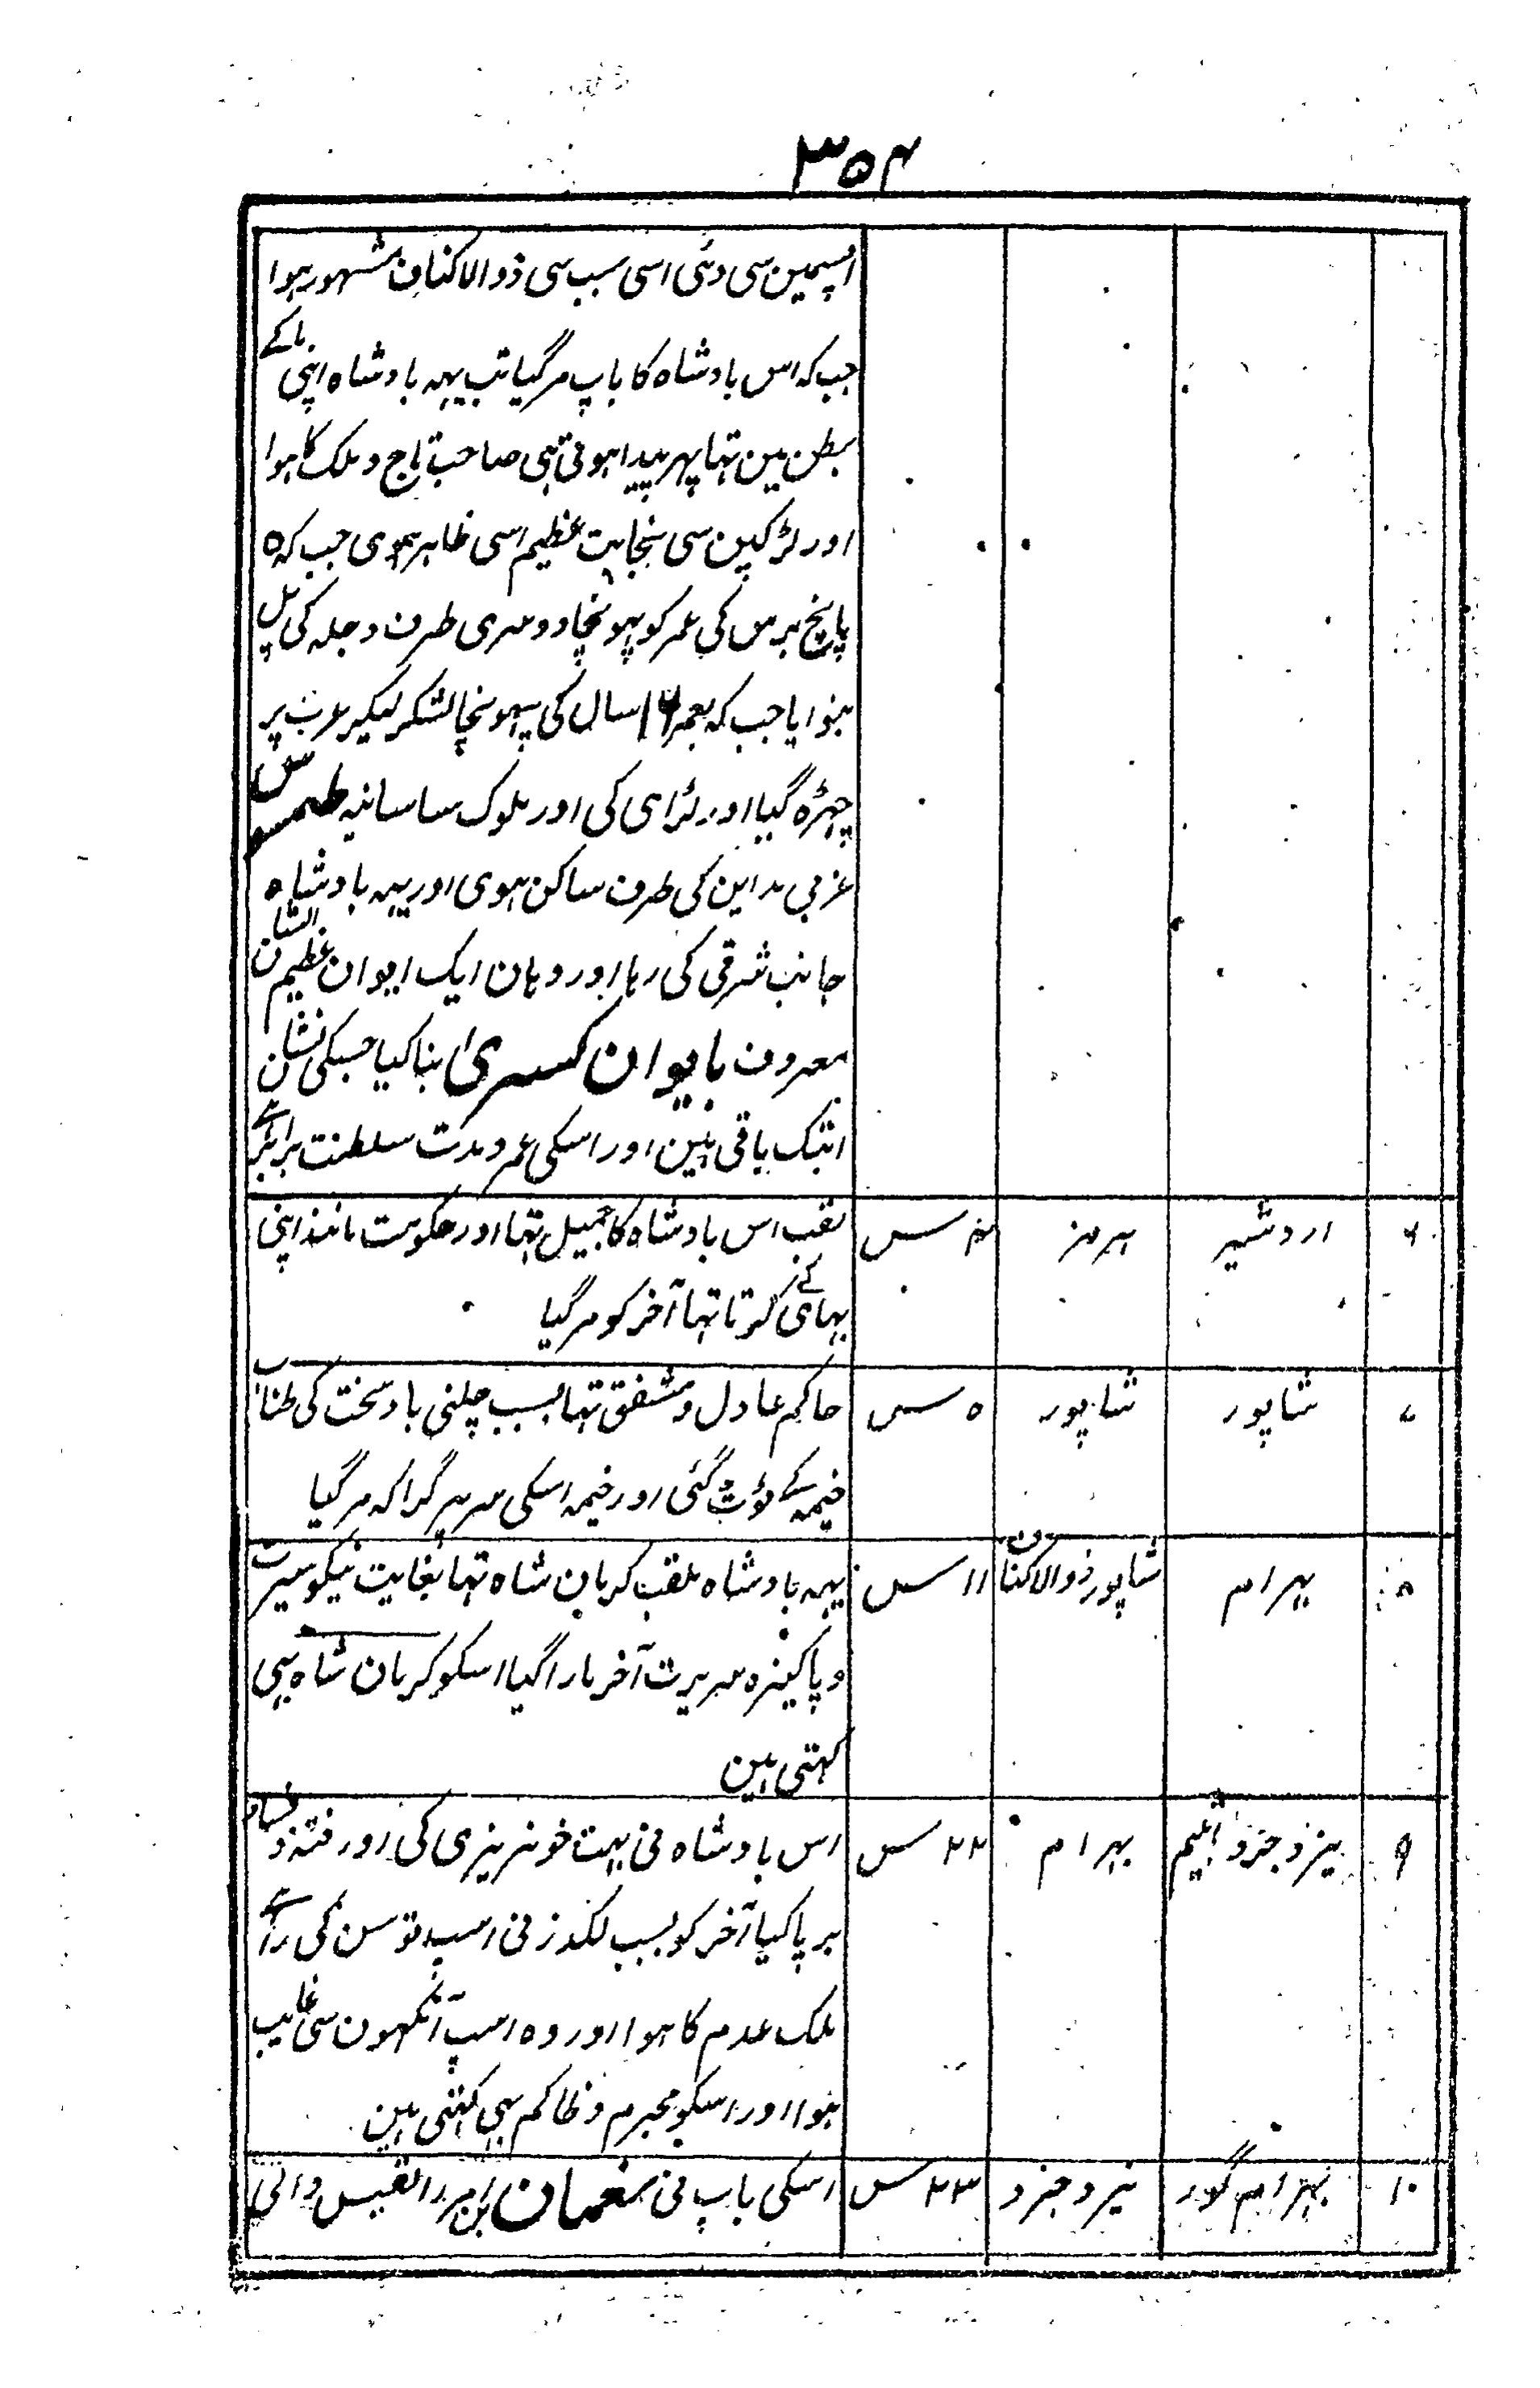 ۳۵۴
امسپمین سی دئی اسی سبب سی ذوالاکناف مشہور ہوا
جب کہ اس بادشاہ کا باپ مرگیا تب یہہ بادشاہ اپنی ماکے
بطن مین تہا پہر پیدا ہوتی ہی صاحب تاج و ملک کا ہوا
اور لڑکپن سی نجابت عظیم اسی ظاہر ہوی جب کہ ہ
پانچ برس کی عمر کو پہونچا دوسری طرف دجلہ کی پل
بنوایا جب کہ بعمر ۱۶ سال کی پہونچا لشکر لیکر عرب پر
چہڑہ گیا اور لڑای کی اور ملوک ساسانیہ
غربی مداین کی طرف ساکن ہوی اور یہہ بادشاہ
جانب شرقی کی رہا اور وہان ایک ایوان عظیم الشان
معروف بایوان کسری بنا کیا جسکی نشان
ابتک باقی ہین اور اسکی عمر و مدت سلطنت برابر ہے
۶ اردشیر ہرمز ۴ س لقب اس بادشاہ کا جمیل تہا اور حکومت مانند اپنی
بہائی کے کرتا تہا آخر کو مرگیا
۷ شاپور شاپور ۵ س حاکم عادل و مشفق تہا بسبب چلنی باد سخت کی طناب
خیمہ کے ٹوٹ گئی اور خیمہ اسکی سر پر گرا کہ مرگیا
۸ بہرام شاپور ذوالاکناف ۱۱ س یہہ بادشاہ ملقب کرمان شاہ تہا بغایت نیکو سیرت
و پاکیزہ سریرت آخر مارا گیا اسکو کرمان شاہ بہی
کہتی ہین
۹ یزدجرد اثیم بہرام ۲۲ س اس بادشاہ نی بہت خونریزی کی اور فتنہ و فساد
برپا کیا آخر کو بسبب لکدزنی اسپ توسن کی راہے
ملک عدم کا ہوا اور وہ اسپ آنکہون سی غایب
ہوا اور اسکو مجرم و ظاکم بہی کہتی ہین
۱۰ بہرام گور یزدجرد ۲۳ س اسکی باپ نی نعمان بن امرء القیس والی